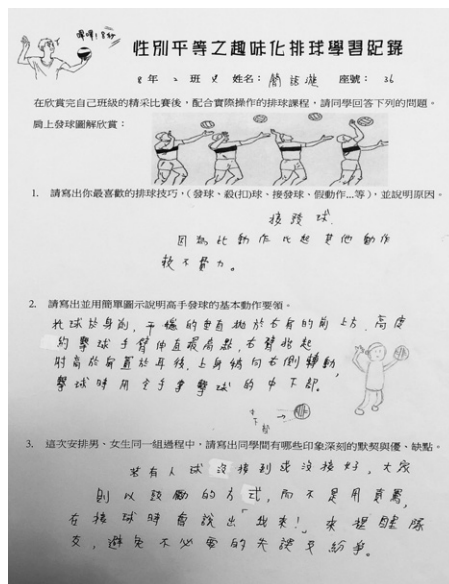 嘿嘿!
性別平等之趣味化排球學習記錄
8 年 2 班 姓名: 座號: 36
在欣賞完自己班級的精采比賽後,配合實際操作的排球課程,請同學回答下列的問題。
肩上發球圖解欣賞:
1. 請寫出你最喜歡的排球技巧,(發球、殺(扣)球、接發球、假動作...等),並說明原因。
接發球
因為此動作比起其他動作
較不費力。
2. 請寫出並用簡單圖示說明高手發球的基本動作要領。
托球於身前,平穩的垂直拋於右肩的前上方,高度
約擊球手臂伸直最高點,右臂抬起
肘高於肩置於耳後,上身稍向右側轉動,
擊球時用全手掌擊球的中下部。
中
下部
3. 這次安排男、女生同一組過程中,請寫出同學間有哪些印象深刻的默契與優、缺點。
若有人球沒接到或沒接好,大家
則以鼓勵的方式,而不是用責罵,
在接球時會說出「我來!」來提醒隊
友,避免不必要的失誤及紛爭。